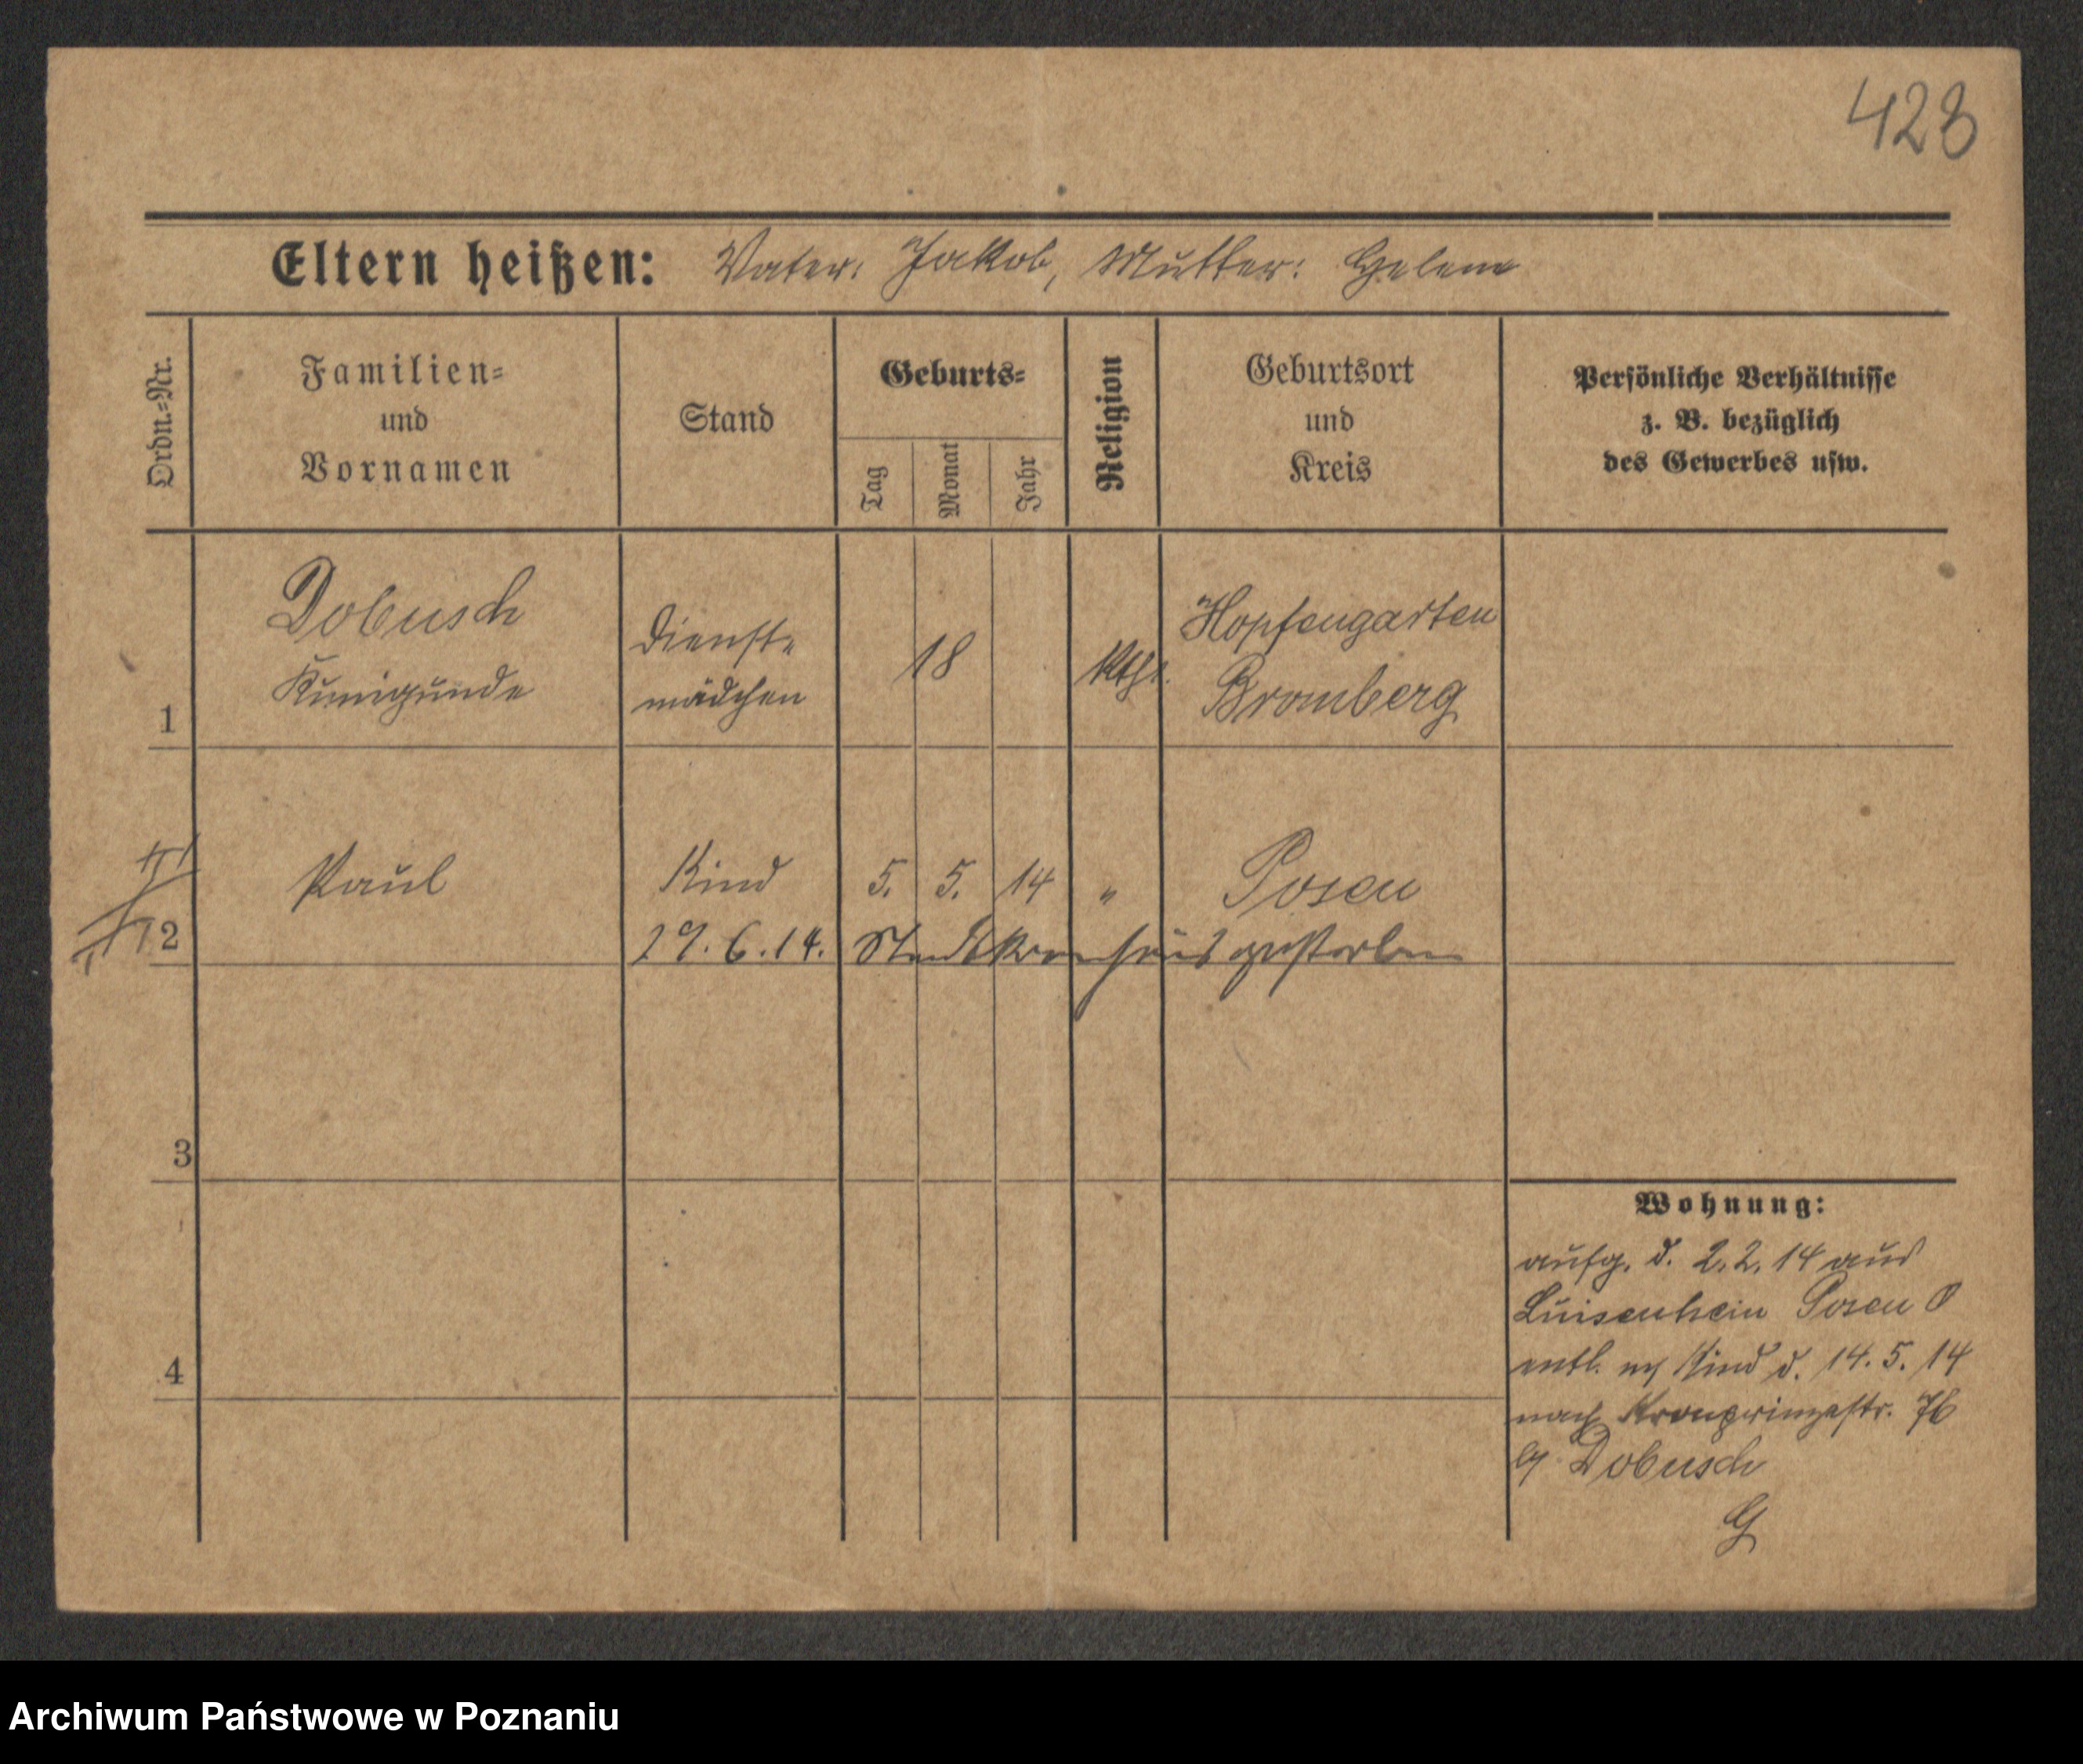 428
Eltern heißen: Vater: Jakob, Mutter: Helene
Ordn.=Nr.
Familien=
und
Vornamen
Stand
Geburts=
Tag
Monat
Jahr
Religion
Geburtsort
und
Kreis
Persönliche Verhältnisse
z. B. bezüglich
des Gewerbes usw.
1
Dobusch
Kunigunde
Dienst=
mädchen
18
kth.
Hopfengarten
Bromberg
2
Paul
Kind
5. 5. 14
"
Posen
29. 6. 14. Stadtkrankenhaus gestorben
3
4
Wohnung:
aufg. d. 2. 2. 14 aus
Luisenhein Posen O
entl. m Kind d. 14. 5. 14
nach Kronprinzestr. 76
by Dobusch
G
Archiwum Państwowe w Poznaniu